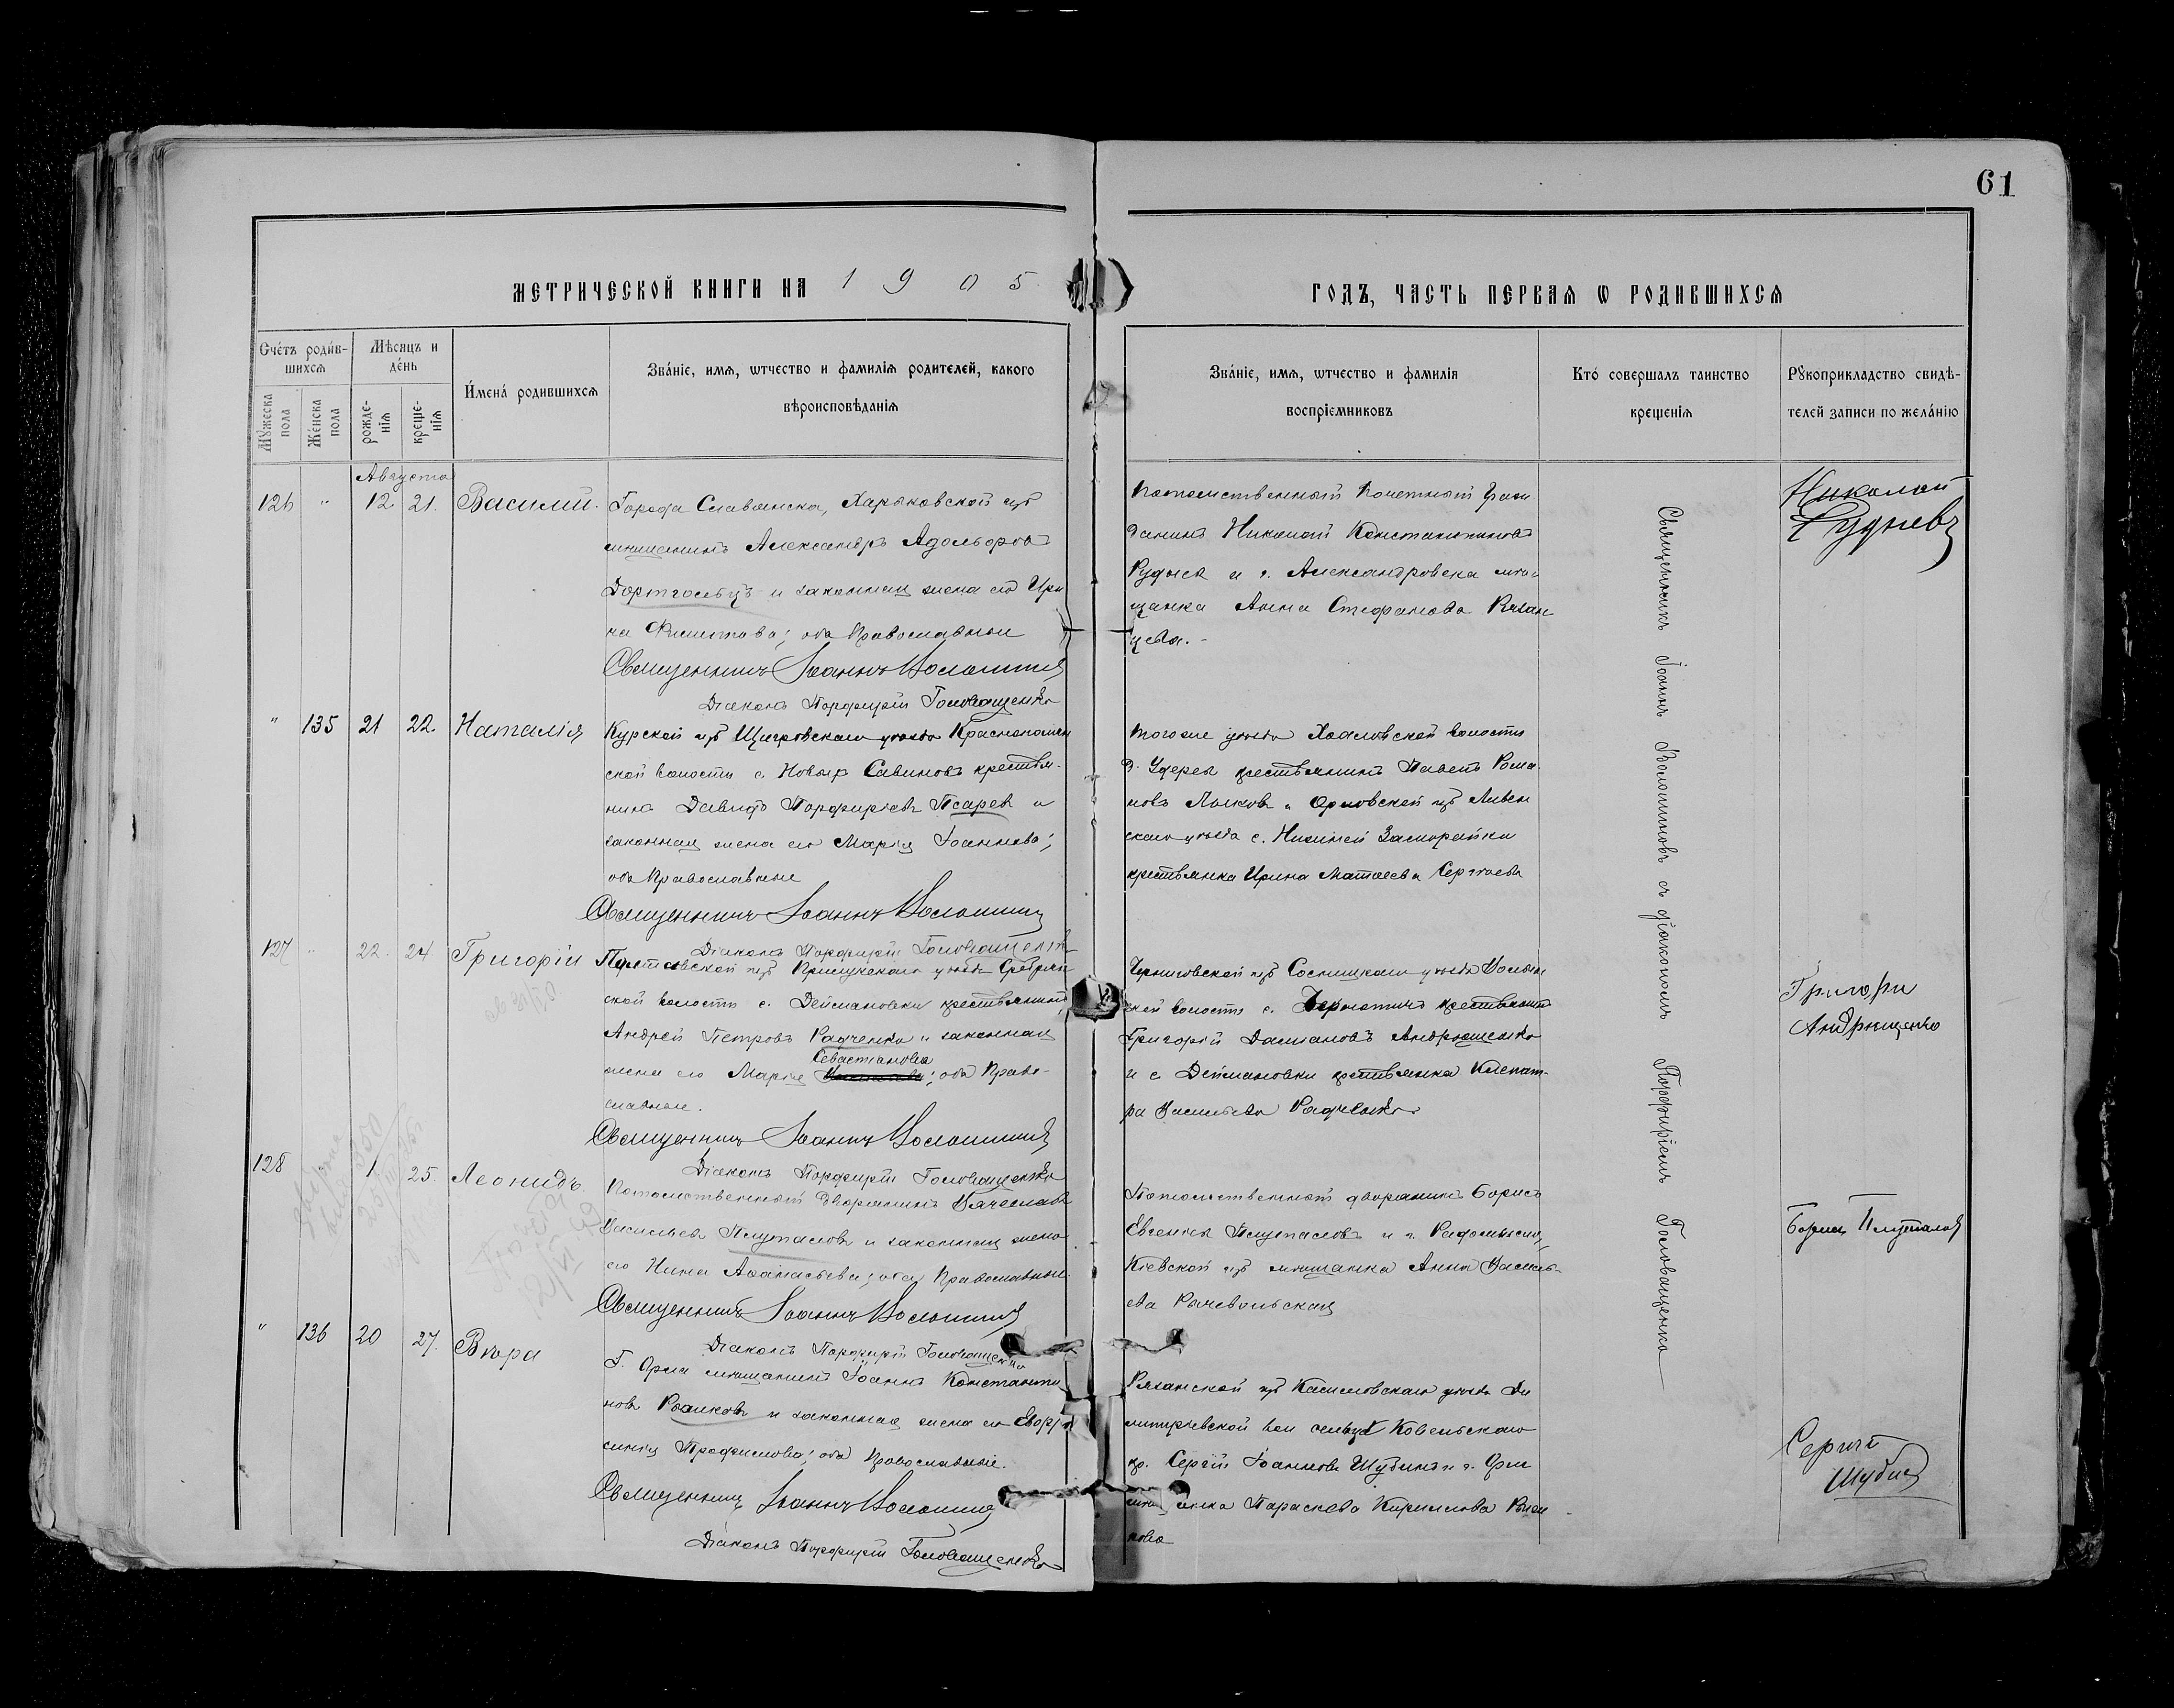 61
МЕТРИЧЕСКОЙ КНИГИ НА 1905
ГОДЪ, ЧАСТЬ ПЕРВАЯ Ѡ РОДИВШИХСЯ
Счетъ родив-
шихся
Мѣсяцъ и
день
Мужеска
пола
Женска
пола
рожде-
нія
креще-
нія
Имена родившихся
Званіе, имя, ѡтчество и фамилія родителей, какого
вѣроисповѣданія
Званіе, имя, ѡтчество и фамилія
воспріемниковъ
Кто совершалъ таинство
крещенія
Рукоприкладство свидѣ-
телей записи по желанію
Августа
126 " 12 21. Василій.
Города Славянска, Харьковской губ
мѣщанинъ Александръ Адольфовъ
и законная жена его Ири
на; оба Православные
Священникъ Іоаннъ Волошинов
Діаконъ Порфирій Головащенко
Потомственный Почетный Граж
данинъ Николай Константиновъ
Руднев и г. Александровска мѣщ
щанка Анна Стефанова Рязан
цева.-
Николай
Рудневъ
" 135 21 22. Наталія
Курской губ Щигровскаго уѣзда
ской волости с. Новыхъ Савиновъ крестья-
нинъ Давидъ Порфиріевъ Псарев и
законная жена его Марія Іоаннова;
оба Православные
Священникъ Іоаннъ Волошинов
Діаконъ Порфирій Головащенко
Того же уѣзда волости
д. Удерева крестьянинъ Павелъ Рома-
новъ и Орловской губ Ливен
скаго уѣзда с.
крестьянка Ирина Матвеева Сергѣева
127 " 22. 24 Григорій
Полтавской губ Прилукскаго уѣзда Сребрян
ской волости с. Деймановки крестьянинъ
Андрей Петровъ Радченко и законная
Севастіанова
жена его Марія; оба Право-
славные.
Священникъ Іоаннъ Волошинов
Діаконъ Порфирій Головащенко
Черниговской губ Сосницкаго уѣзда Волын
ской волости с. крестьянинъ
Григорій Даміановъ Андрющенко
и с Деймановки крестьянка Клеопат-
ра Васильева Радченко
Григори
Андрющенко
128 1 25. Леонидъ
Потомственный Дворянинъ Вячеславъ
Васильев Плуталовъ и законная жена
его Нина Афанасьева; оба Православные.
Священникъ Іоаннъ Волошинов
Діаконъ Порфирій Головащенко
Потомственный дворянинъ Борисъ
Евгеніев Плуталовъ и г. Радомысля,
Кіевской губ мѣщанка Анна Василь-
ева
Борис Плуталов
" 136 20 27. Вѣра
Г. Орла мѣщанинъ Іоаннъ Константи
новъ и законная жена его Евфро
синія Трофимова; оба Православные.
Священникъ Іоаннъ Волошинов
Діаконъ Порфирій Головащенко
Рязанской губ Касимовскаго уѣзда Ди
митріевской вол сельца
кр. Сергій Іоаннов Шубинъ и г. Орла
Параскева Кириллова
Сергій
Шубин
Священникъ Іоаннъ Волошиновъ съ діакономъ Порфиріемъ Головащенко